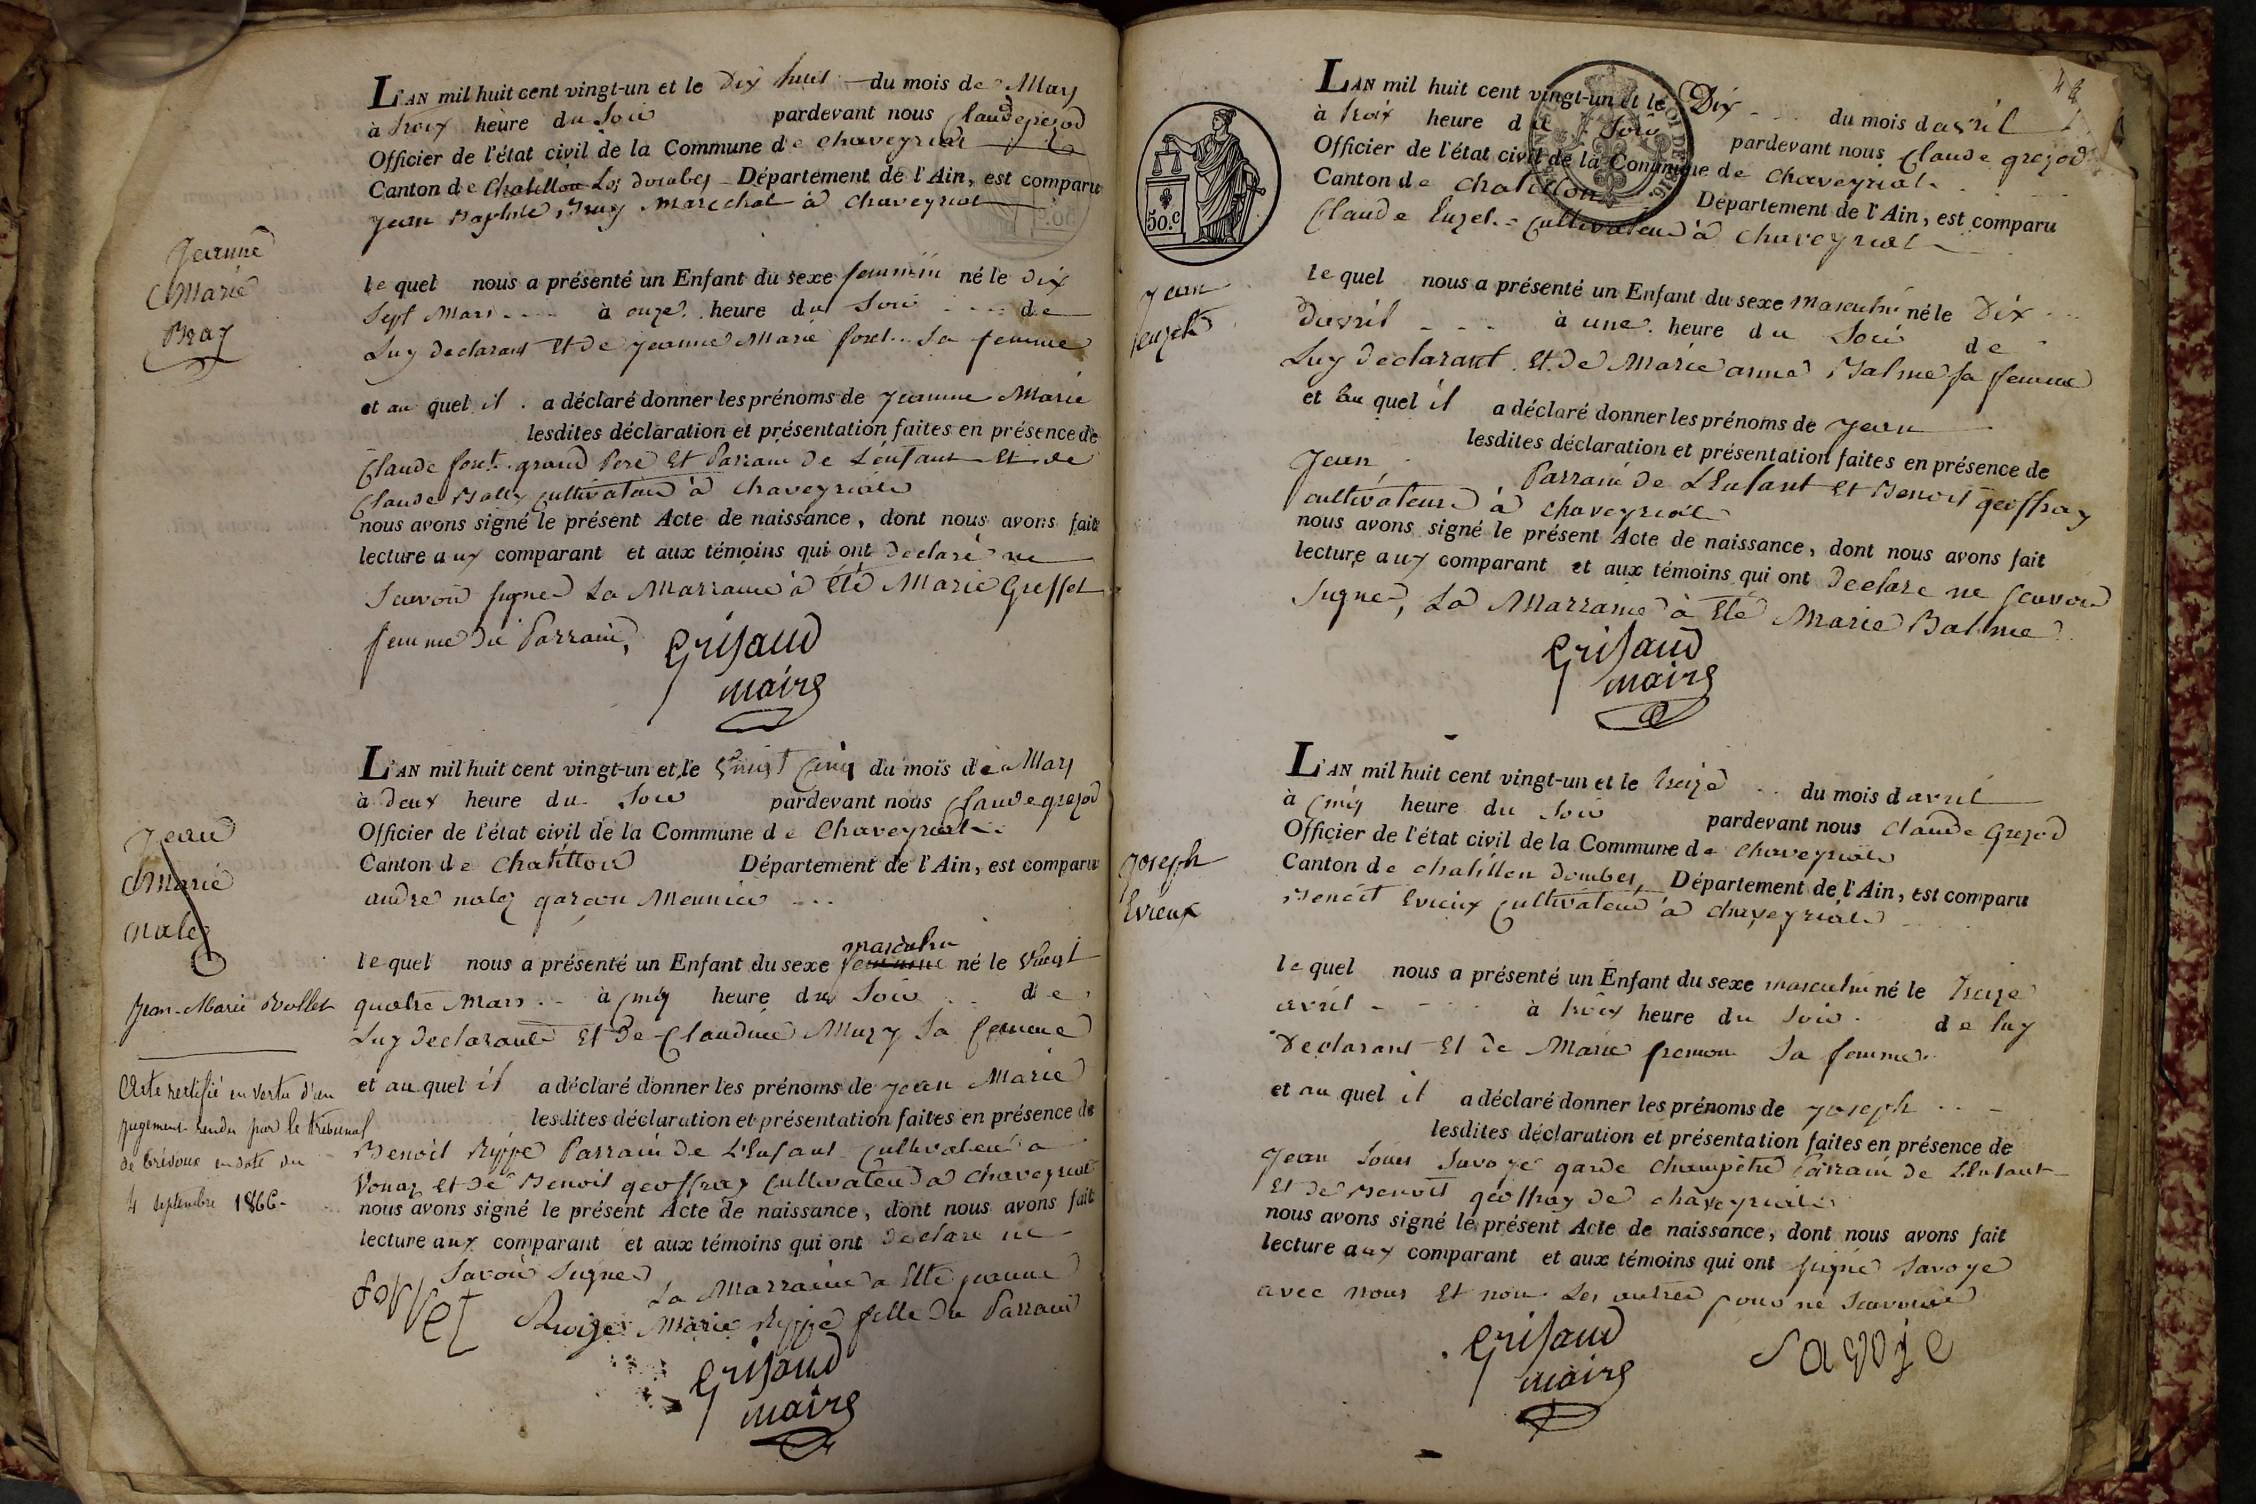 Jeanne
Marie
Bray
L'AN mil huit cent vingt-un et le Dix huit du mois de Mars
à troix heure du Soir pardevant nous Claude grezod
Officier de l'état civil de la Commune de Chaveyriat
Canton de Chatillon Les dombes Département de l'Ain, est comparu
Jean Baptiste Bray Marechal à Chaveyriat
le quel nous a présenté un Enfant du sexe feminin né le Dix
Sept Mars à onze heure du Soir de
Luy declarant Et de Jeanne Marie foret Sa femme
et au quel il a déclaré donner les prénoms de Jeanne Marie
lesdites déclaration et présentation faites en présence de
Claude foret grand Pere Et Parrain de L'enfant Et de
Claude cultivateur à Chaveyriat
nous avons signé le présent Acte de naissance, dont nous avons fait
lecture aux comparant et aux témoins qui ont declaré ne
Savoir signer La Marraine à Eté Marie Greffet
femme du Parrain,
Grisaud
maire
Jean
Marie
nalez
Jean-Marie Bollet
Acte rectifié en vertu d'un
jugement rendu par le tribunal
de trévoux en date du
4 septembre 1866-
L'AN mil huit cent vingt-un et le vingt Cinq du mois de Mars
à deux heure du Soir pardevant nous Claude grezod
Officier de l'état civil de la Commune de Chaveyriat
Canton de Chatillon Département de l'Ain, est comparu
andre nalez garçon Meunier
masculin
le quel nous a présenté un Enfant du sexe né le vingt
quatre Mars à Cinq heure du Soir de
Luy declarant Et de Claudine Mury Sa femme
et au quel il a déclaré donner les prénoms de Jean Marie
lesdites déclaration et présentation faites en présence de
Benoit Rippe Parrain de L'Enfant Cultivateur a
Vonaz et de Benoit geoffray Cultivateur à Chaveyriat
nous avons signé le présent Acte de naissance, dont nous avons fait
lecture aux comparant et aux témoins qui ont declaré ne
Savoir Signer La Marraine a Etté Jeanne
Marie Rippe fille du Parrain
Grisaud
maire
50.c
Jean
Luzel
L'AN mil huit cent vingt-un et le Dix du mois d'avril
à troix heure du Soir pardevant nous Claude grezod
Officier de l'état civil de la Commune de Chaveyriat
Canton de Chatillon Département de l'Ain, est comparu
Claude Luzel Cultivateur à Chaveyriat
le quel nous a présenté un Enfant du sexe masculin né le Dix
Davril à une heure du Soir de
Luy declarant Et de Marie anne Balme Sa femme
et au quel il a déclaré donner les prénoms de Jean
lesdites déclaration et présentation faites en présence de
Jean Parrain de L'Enfant Et Benoit geoffray
cultivateur à Chaveyriat
nous avons signé le présent Acte de naissance, dont nous avons fait
lecture aux comparant et aux témoins qui ont declare ne scavoir
signer, La Marraine à Eté Marie Balme
Grisaud
maire
Joseph
Evieux
L'AN mil huit cent vingt-un et le treize du mois d'avril
à Cinq heure du Soir pardevant nous Claude Grezod
Officier de l'état civil de la Commune de Chaveyriat
Canton de chatillon Dombes, Département de l'Ain, est comparu
Benoit Evieux Cultivateur à Chaveyriat
le quel nous a présenté un Enfant du sexe masculin né le treize
avril à troix heure du Soir de luy
Declarant Et de Marie fremon Sa femme
et au quel il a déclaré donner les prénoms de Joseph
lesdites déclaration et présentation faites en présence de
Jean Louis Savoye garde Champêtre Parrain de L'Enfant
Et de Benoit geoffray de Chaveyriat
nous avons signé le présent Acte de naissance, dont nous avons fait
lecture aux comparant et aux témoins qui ont signé Savoye
avec nous Et non Les autres pour ne Scavoir
Grisaud
maire
Savoie